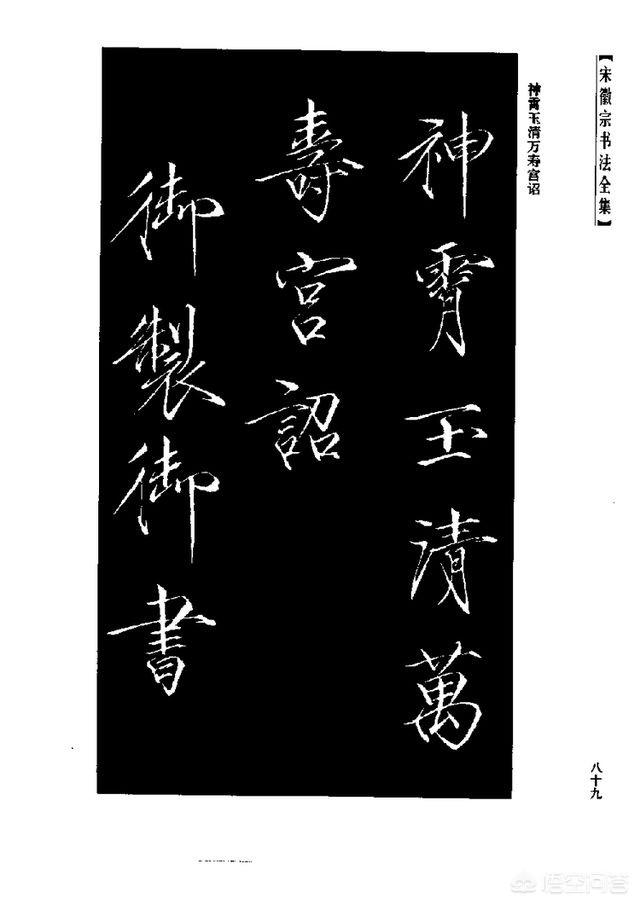 【宋徽宗书法全集】
神霄玉清万寿宫诏
神霄玉清萬
壽宮詔
御製御書
八十九
悟空问答